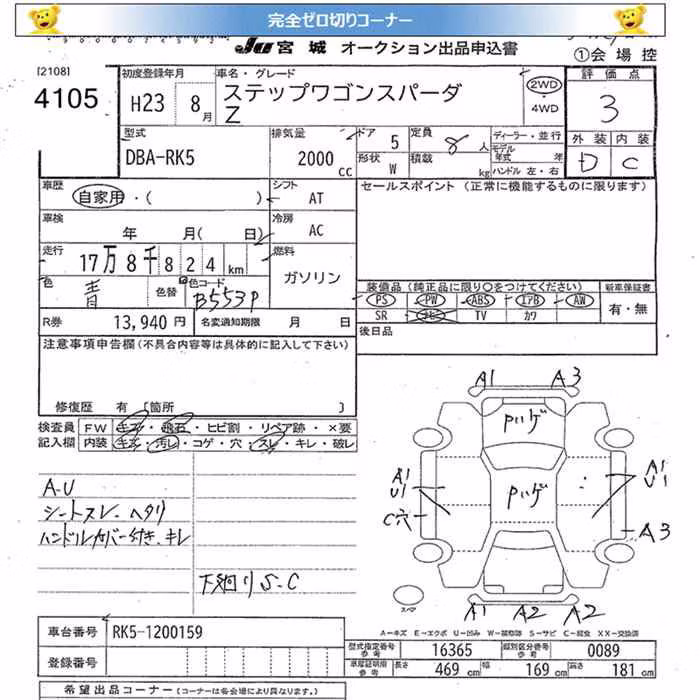 完全ゼロ切りコーナー
JU 宮城 オークション出品申込書
①会場控
[2108]
4105
初度登録年月
H23 8月
車名・グレード
ステップワゴンスパーダ
Z
2WD
・4WD
評価点
3
外装 内装
D C
型式
DBA-RK5
排気量
2000 cc
ドア 5
形状 W
定員 8 人
積載 kg
ディーラー・並行
モデル年式 年
ハンドル 左・右
車歴
自家用・( )
シフト AT
車検
年 月( 日)
冷房 AC
走行
17万8千824 km
燃料
ガソリン
色
青
色替
色コード
B553P
R券 13,940円
名変通知期限 月 日
セールスポイント (正常に機能するものに限ります)
装備品(純正品に限り○をつけてください)
新車保証書
PS PW ABS エアB AW
SR ナビ TV カワ
有・無
後日品
注意事項申告欄(不具合内容等は具体的に記入して下さい)
修復歴 有 [箇所 ]
検査員記入欄
FW キズ・飛石・ヒビ割・リペア跡・×要
内装 キズ・汚レ・コゲ・穴・スレ・キレ・破レ
A-U
シートスレ・ヘタリ
ハンドルカバー付き、キレ
下廻りS-C
A1 A3
Pハゲ
Pハゲ
A1
U1
C穴
A1
U1
A3
A1 A2 A2
スペア
A―キズ E―エクボ U―凹み W―補修跡 S―サビ C―腐食 XX―交換済
車台番号 RK5-1200159
登録番号
型式指定番号 参考 16365
類別区分番号 参考 0089
車庫証明用 参考 長さ 469 cm 幅 169 cm 高さ 181 cm
希望出品コーナー(コーナーは各会場により異なります。)